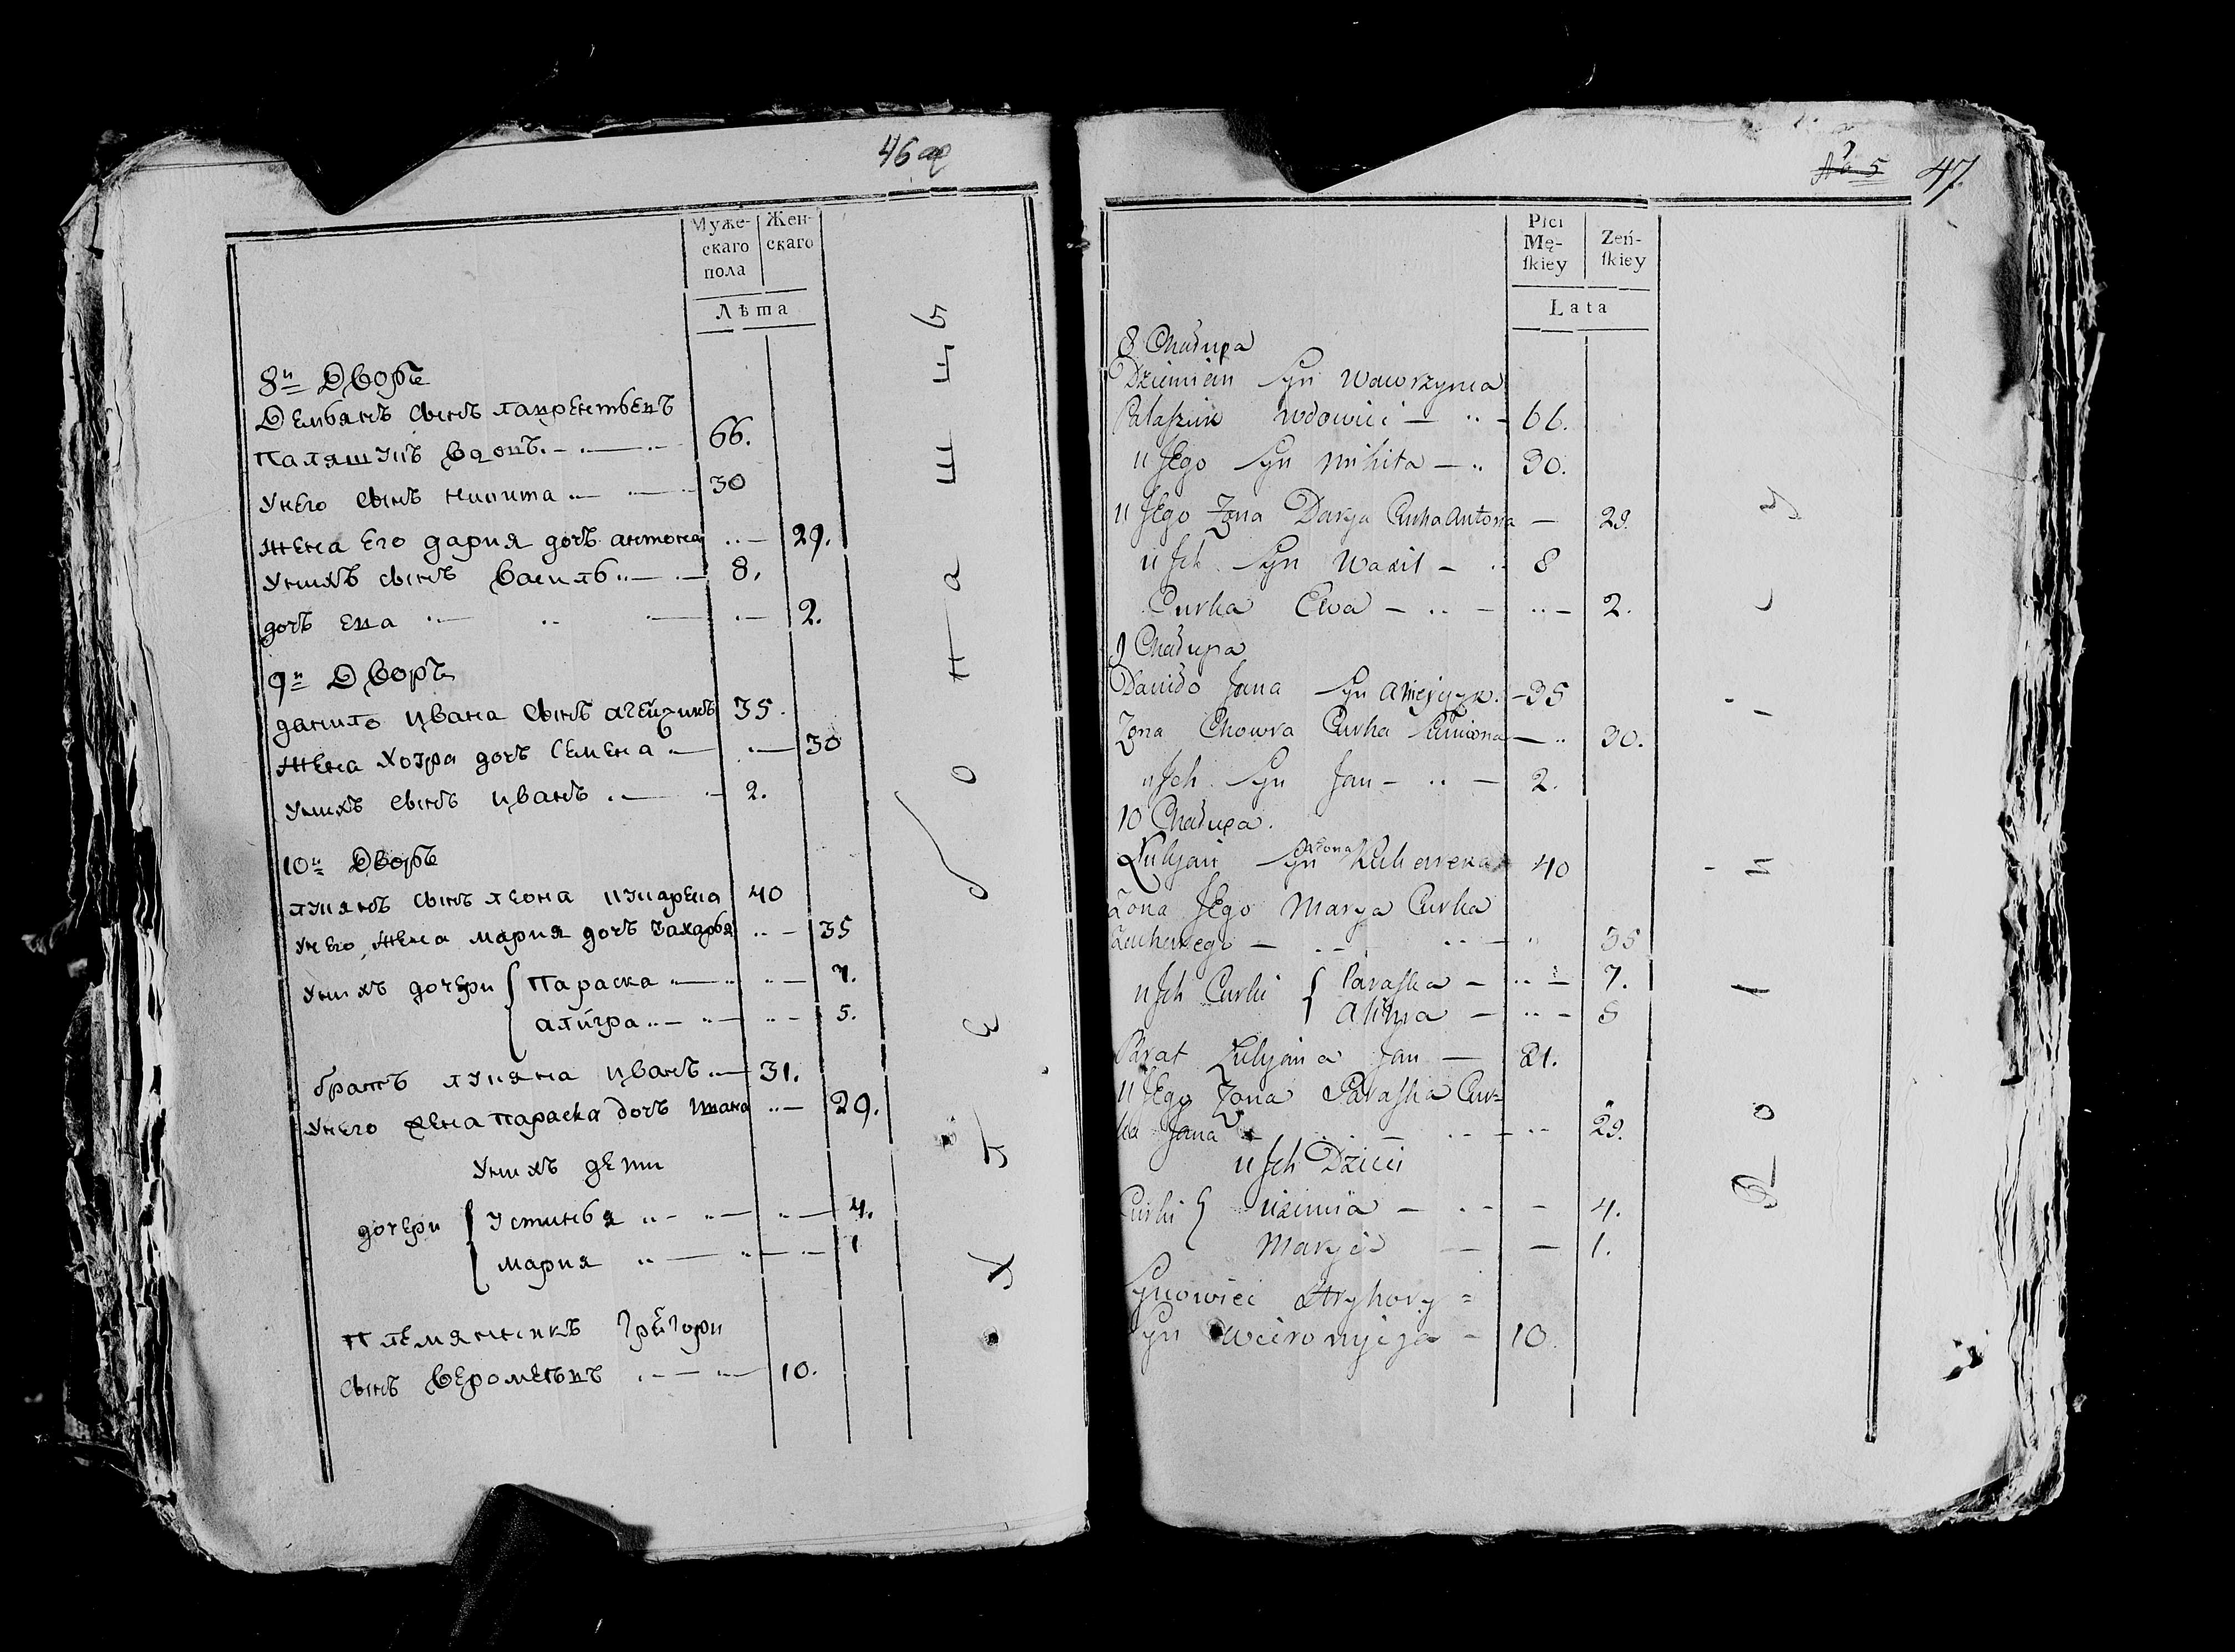 46 об
Муже-
скаго
пола
Жен-
скаго
Лѣта
8й Дворъ
Демьянъ сынъ лаврентьевъ
паляшукъ вдовъ 66.
Унего сынъ никита 30
жена Его дария дочь антона 29.
Унихъ сынъ василь 8.
дочь ева 2.
9й Дворъ
данило ивана сынъ 35.
жена ховра дочь семена 30
Унихъ сынъ иванъ 2.
10й Дворъ
лукянъ сынъ леона 40
Унего жена мария дочь захарья 35
Унихъ дочери параска 7.
5.
братъ лукяна иванъ 31.
Унего жена параска дочь ивана 29.
Унихъ дети
дочери устинья 4.
мария 1
племянникъ григори
сынъ 10.
No 5 47
Płci
Mę-
ſkiey
Zeń-
ſkiey
Lata
8 Chałupa
Dziemian Syn Wawrzynca
wdowiec 66.
u Jego Syn Mikita 30.
u Jego Zona Darya Curka Antona 29.
u Jch Syn Wasil 8
Curka Ewa 2.
9 Chałupa
Daniło Jana Syn 35
Zona Chowra Curka Siemiona 30.
u Jch Syn Jan 2.
10 Chałupa.
Łukjan Syn Leona 40
Zona Jego Marya Curka
35
u Jch Curki Paraska 7.
5
Brat Łukjana Jan 31.
u Jego Zona Paraska Cur=
ka Jana 29.
u Jch Dzieci
Curki 4.
Marya 1.
Synowiec Hryhory
Syn 10.